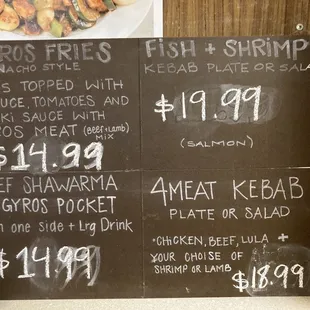 ROS FRIES
NACHO STYLE
S TOPPED WITH
UCE, TOMATOES AND
KI SAUCE WITH
ROS MEAT (Beef + Lamb)
MIX
$14.99
FISH + SHRIMP
KEBAB PLATE OR SALA
$19.99
(SALMON)
EF SHAWARMA
GYROS POCKET
one side + Lrg Drink
$14.99
4 MEAT KEBAB
PLATE OR SALAD
• CHICKEN, BEEF, LULA +
YOUR CHOICE OF
SHRIMP OR LAMB
$18.99